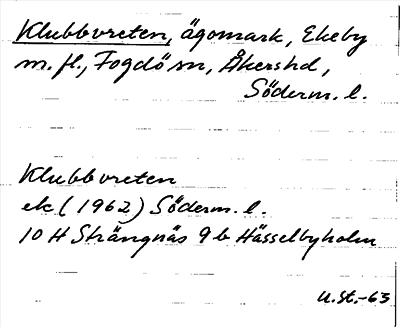 Klubbvreten, ägomark, Ekeby
m.fl., Fogdö sn, Åkershd,
Söderm. l.
Klubbvreten
ek (1962) Söderm. l.
10 H Strängnäs 9 b Hässelbyholm
U.St.-63